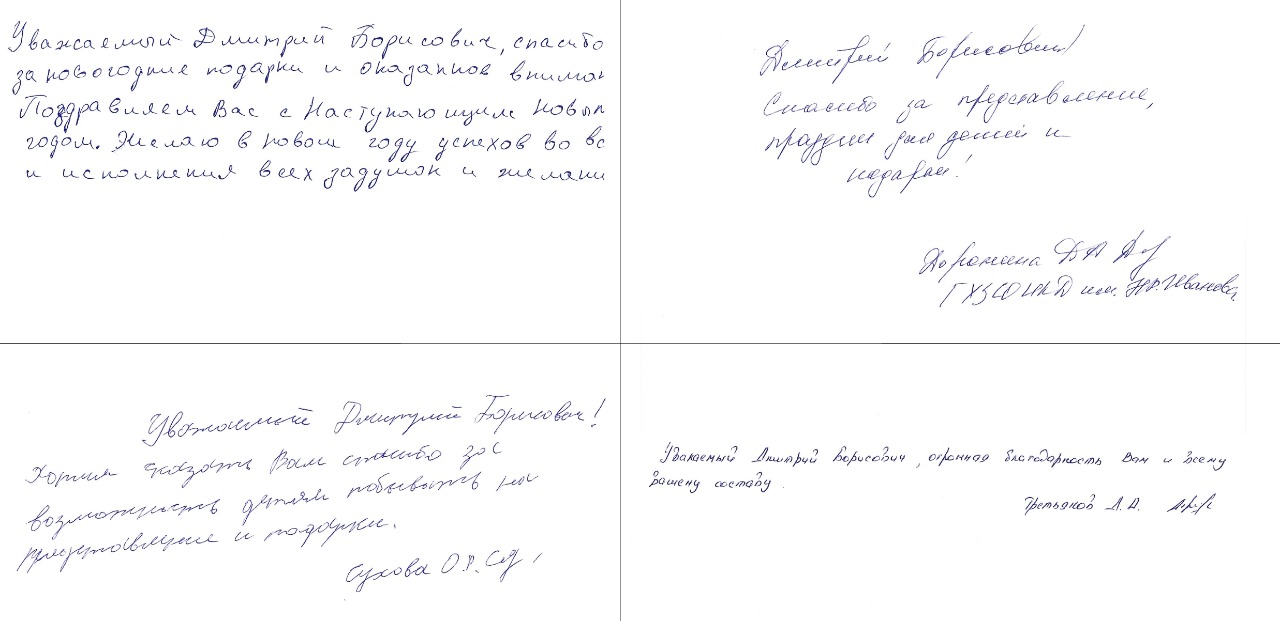 Уважаемый Дмитрий Борисович, спасибо
за новогодние подарки и оказанное вниман
Поздравляем Вас с Наступающим Новым
годом. Желаю в новом году успехов во вс
и исполнения всех задумок и желани
Дмитрий Борисович!
Спасибо за представление,
праздник для детей и
подарки!
Доронина Д А
им. Н.Р. Иванова
Уважаемый Дмитрий Борисович!
Хотим сказать Вам спасибо за
возможность детям побывать на
представление и подарки.
Сухова О.
Уважаемый Дмитрий Борисович, огромная благодарность Вам и всему
Вашему составу.
Третьяков Д. А.